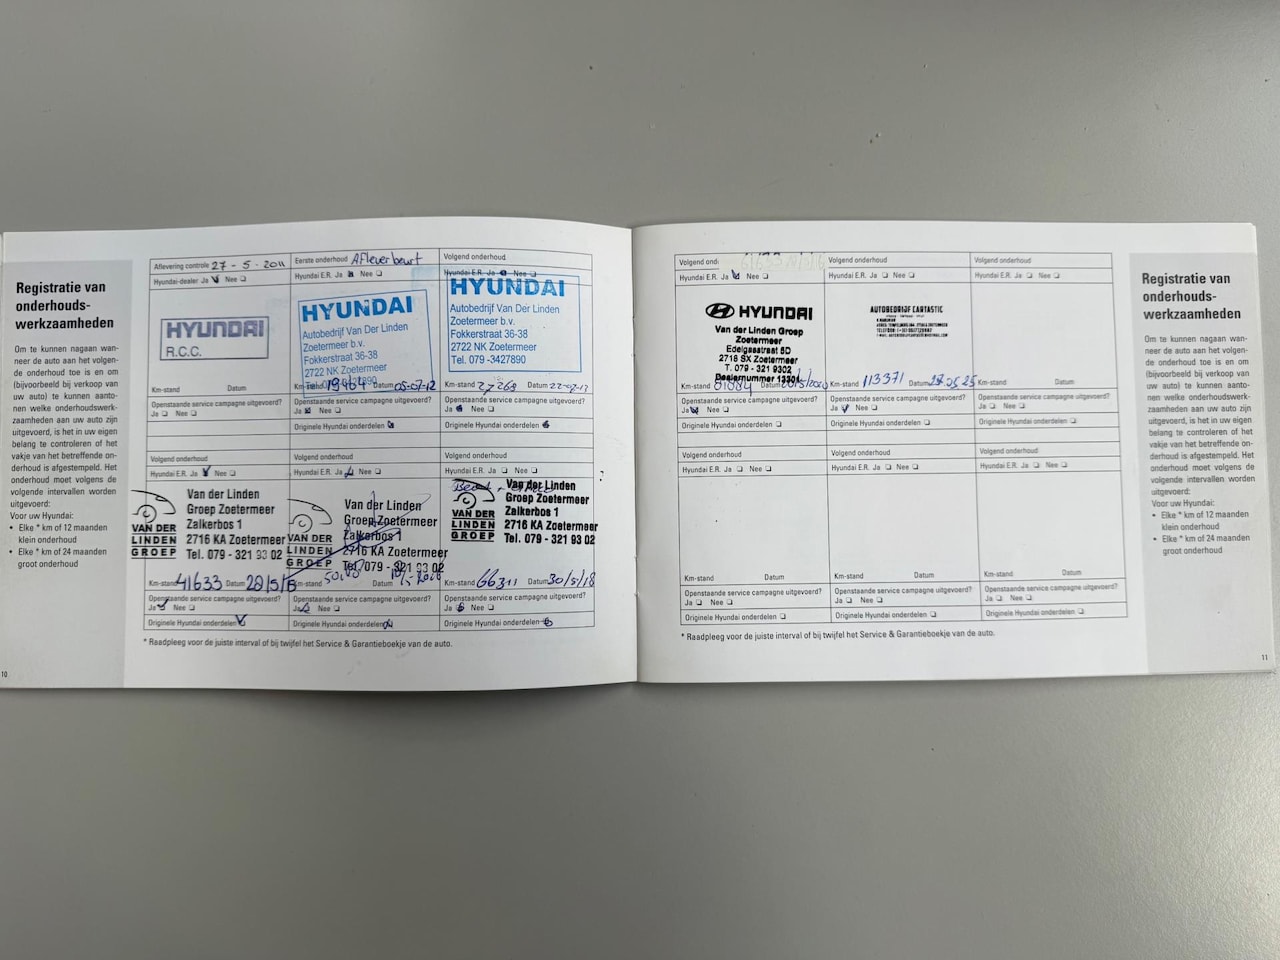 Registratie van
onderhouds-
werkzaamheden
Om te kunnen nagaan wan-
neer de auto aan het volgen-
de onderhoud toe is en om
(bijvoorbeeld bij verkoop van
uw auto) te kunnen aanto-
nen welke onderhoudswerk-
zaamheden aan uw auto zijn
uitgevoerd, is het in uw eigen
belang te controleren of het
vakje van de betreffende on-
derhoud is afgestempeld. Het
onderhoud moet volgens de
volgende intervallen worden
uitgevoerd:
Voor uw Hyundai:
• Elke * km of 12 maanden
klein onderhoud
• Elke * km of 24 maanden
groot onderhoud
10
Aflevering controle 27-5-2011
Hyundai-dealer Ja Nee
HYUNDAI
R.C.C.
Km-stand Datum
Openstaande service campagne uitgevoerd?
Ja Nee
Eerste onderhoud Afleverbeurt
Hyundai E.R. Ja Nee
HYUNDAI
Autobedrijf Van Der Linden
Zoetermeer b.v.
Fokkerstraat 36-38
2722 NK Zoetermeer
Km-stand 19464 Datum 05-07-12
Openstaande service campagne uitgevoerd?
Ja Nee
Originele Hyundai onderdelen
Volgend onderhoud
Hyundai E.R. Ja Nee
HYUNDAI
Autobedrijf Van Der Linden
Zoetermeer b.v.
Fokkerstraat 36-38
2722 NK Zoetermeer
Tel. 079 -3427890
Km-stand 27268 Datum
Openstaande service campagne uitgevoerd?
Ja Nee
Originele Hyundai onderdelen
Volgend onderhoud
Hyundai E.R. Ja Nee
VAN DER
LINDEN
GROEP
Van der Linden
Groep Zoetermeer
Zalkerbos 1
2716 KA Zoetermeer
Tel. 079 - 321 93 02
Km-stand 41633 Datum
Openstaande service campagne uitgevoerd?
Ja Nee
Originele Hyundai onderdelen
Volgend onderhoud
Hyundai E.R. Ja Nee
VAN DER
LINDEN
GROEP
Van der Linden
Groep Zoetermeer
Zalkerbos 1
2716 KA Zoetermeer
Tel. 079 - 321 93 02
Km-stand Datum
Openstaande service campagne uitgevoerd?
Ja Nee
Originele Hyundai onderdelen
Volgend onderhoud
Hyundai E.R. Ja Nee
VAN DER
LINDEN
GROEP
Van der Linden
Groep Zoetermeer
Zalkerbos 1
2716 KA Zoetermeer
Tel. 079 - 321 93 02
Km-stand 66311 Datum 30/5/18
Openstaande service campagne uitgevoerd?
Ja Nee
Originele Hyundai onderdelen
* Raadpleeg voor de juiste interval of bij twijfel het Service & Garantieboekje van de auto.
Volgend
Hyundai E.R. Ja Nee
HYUNDAI
Van der Linden Groep
Zoetermeer
Edelgasstraat 5D
2718 SX Zoetermeer
T. 079 - 321 9302
Dealernummer 13301
Km-stand 81884 Datum
Openstaande service campagne uitgevoerd?
Ja Nee
Originele Hyundai onderdelen
Volgend onderhoud
Hyundai E.R. Ja Nee
AUTOBEDRIJF CARTASTIC
Km-stand 113371 Datum 27 05 25
Openstaande service campagne uitgevoerd?
Ja Nee
Originele Hyundai onderdelen
Volgend onderhoud
Hyundai E.R. Ja Nee
Km-stand Datum
Openstaande service campagne uitgevoerd?
Ja Nee
Originele Hyundai onderdelen
Volgend onderhoud
Hyundai E.R. Ja Nee
Km-stand Datum
Openstaande service campagne uitgevoerd?
Ja Nee
Originele Hyundai onderdelen
Volgend onderhoud
Hyundai E.R. Ja Nee
Km-stand Datum
Openstaande service campagne uitgevoerd?
Ja Nee
Originele Hyundai onderdelen
Volgend onderhoud
Hyundai E.R. Ja Nee
Km-stand Datum
Openstaande service campagne uitgevoerd?
Ja Nee
Originele Hyundai onderdelen
* Raadpleeg voor de juiste interval of bij twijfel het Service & Garantieboekje van de auto.
Registratie van
onderhouds-
werkzaamheden
Om te kunnen nagaan wan-
neer de auto aan het volgen-
de onderhoud toe is en om
(bijvoorbeeld bij verkoop van
uw auto) te kunnen aanto-
nen welke onderhoudswerk-
zaamheden aan uw auto zijn
uitgevoerd, is het in uw eigen
belang te controleren of het
vakje van de betreffende on-
derhoud is afgestempeld. Het
onderhoud moet volgens de
volgende intervallen worden
uitgevoerd:
Voor uw Hyundai:
• Elke * km of 12 maanden
klein onderhoud
• Elke * km of 24 maanden
groot onderhoud
11